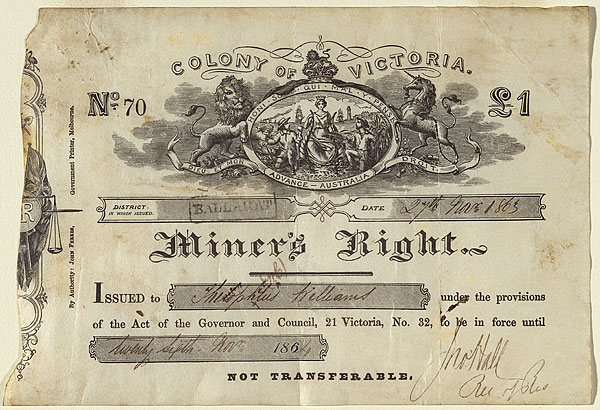 COLONY OF VICTORIA.
No. 70
£1
HONI SOIT QUI MAL Y PENSE
DIEU ET MON DROIT
ADVANCE – AUSTRALIA
DISTRICT IN WHICH ISSUED.
BALLAARAT
DATE 27th Novr 1863
Miner's Right.
ISSUED to Theophilus Williams under the provisions
of the Act of the Governor and Council, 21 Victoria, No. 32, to be in force until
twenty sixth Novr 1864
NOT TRANSFERABLE.
Jno Hall
By Authority: JOHN FERRES, Government Printer, Melbourne.